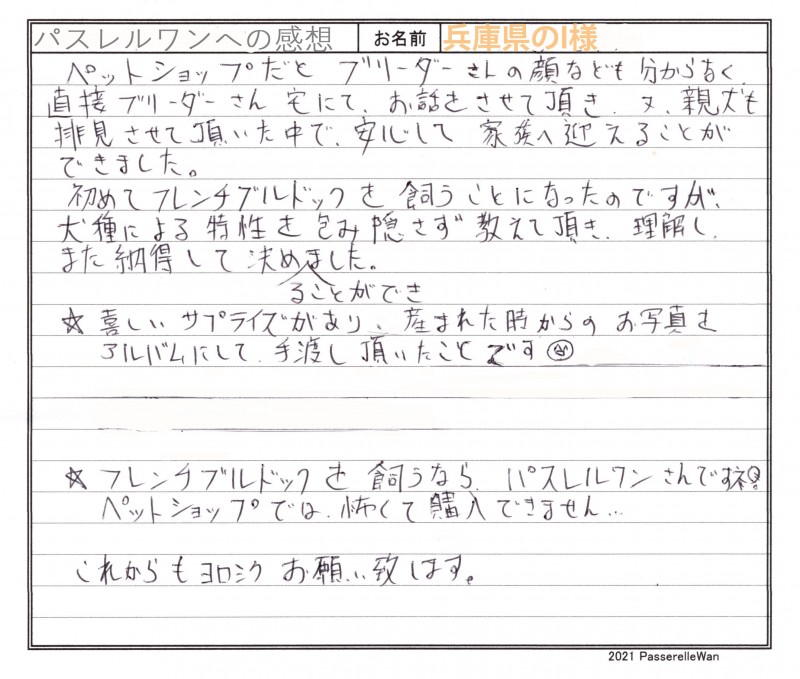 パスレルワンへの感想 お名前 兵庫県のI様
ペットショップだと ブリーダーさんの顔なども分からなく、
直接ブリーダーさん宅にて、お話をさせて頂き、又、親犬も
拝見させて頂いた中で、安心して 家族へ迎えることが
できました。
初めてフレンチブルドックを飼うことになったのですが、
犬種による特性を包み隠さず教えて頂き、理解し、
また納得して決めました。
ることができ
☆ 喜しいサプライズがあり、産まれた時からのお写真を
アルバムにして、手渡し頂いたことです
☆ フレンチブルドックを飼うなら、パスレルワンさんですネ!
ペットショップでは、怖くて購入できません…
これからもヨロシクお願い致します。
2021 PasserelleWan